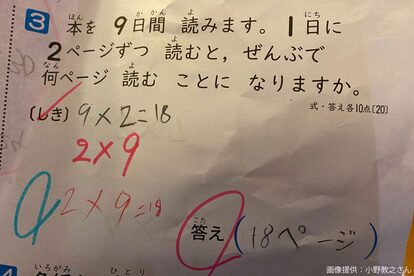 3 本を 9日間 読みます。1日に
2ページずつ 読むと、ぜんぶで
何ページ 読む ことに なりますか。
式・答え各10点〔20〕
(しき) 9×2=18
2×9
2×9=18
答え (18ページ)
画像提供：小野敦之さん
いろがみ ひとり